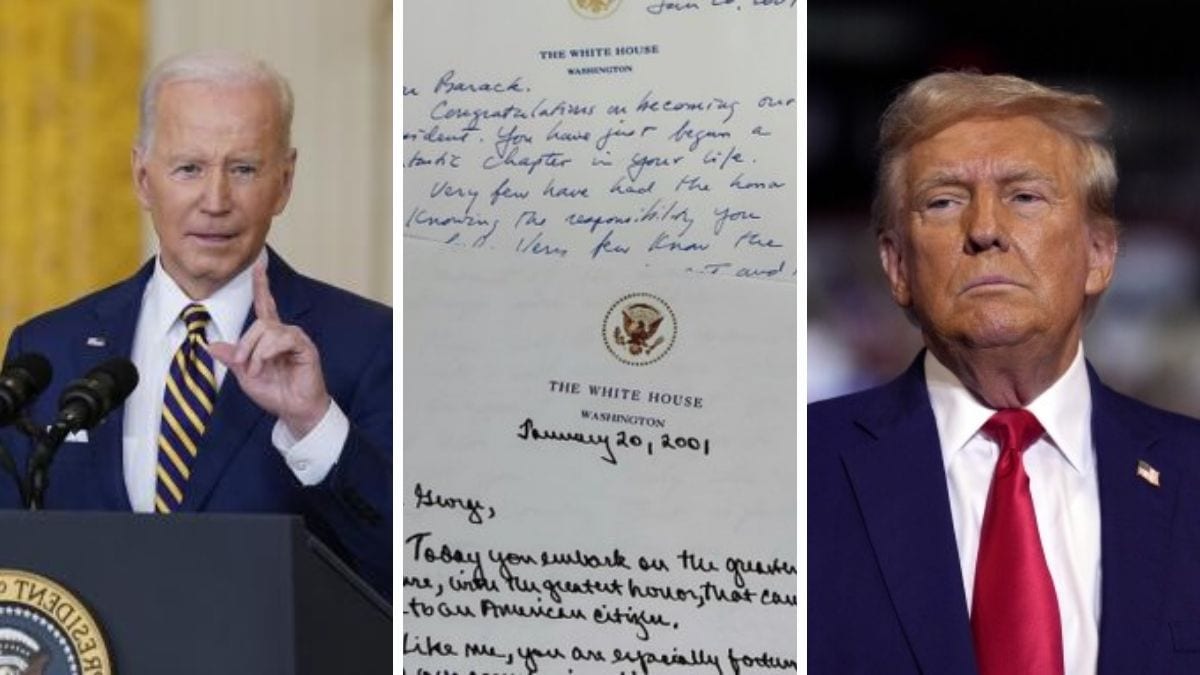 PRESIDENT
Jan 20, 200
THE WHITE HOUSE
WASHINGTON
Barack.
Congratulations on becoming our
sident. You have just began a
tastic chapter in your life.
Very few have had the honor
Knowing the responsibility you
Very few know the
and
THE WHITE HOUSE
WASHINGTON
January 20, 2001
George,
Today you embark on the greatest
ure, with the greatest honor, that can
to an American citizen.
Like me, you are especially fortun